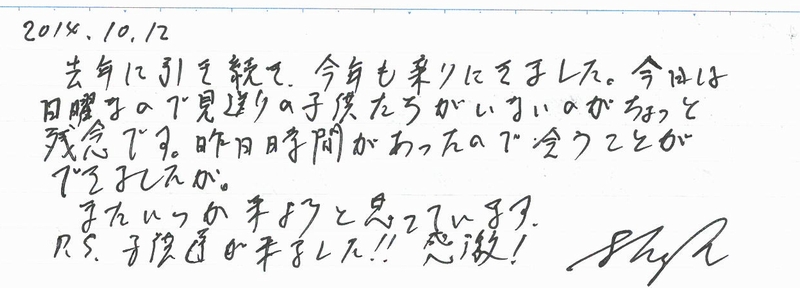 2014.10.12
去年に引き続き、今年も乗りにきました。今日は
日曜なので見送りの子供たちがいないのがちょっと
残念です。昨日時間があったので会うことが
できましたが。
またいつか来ようと思っています。
P.S. 子供達が来ました!! 感激!